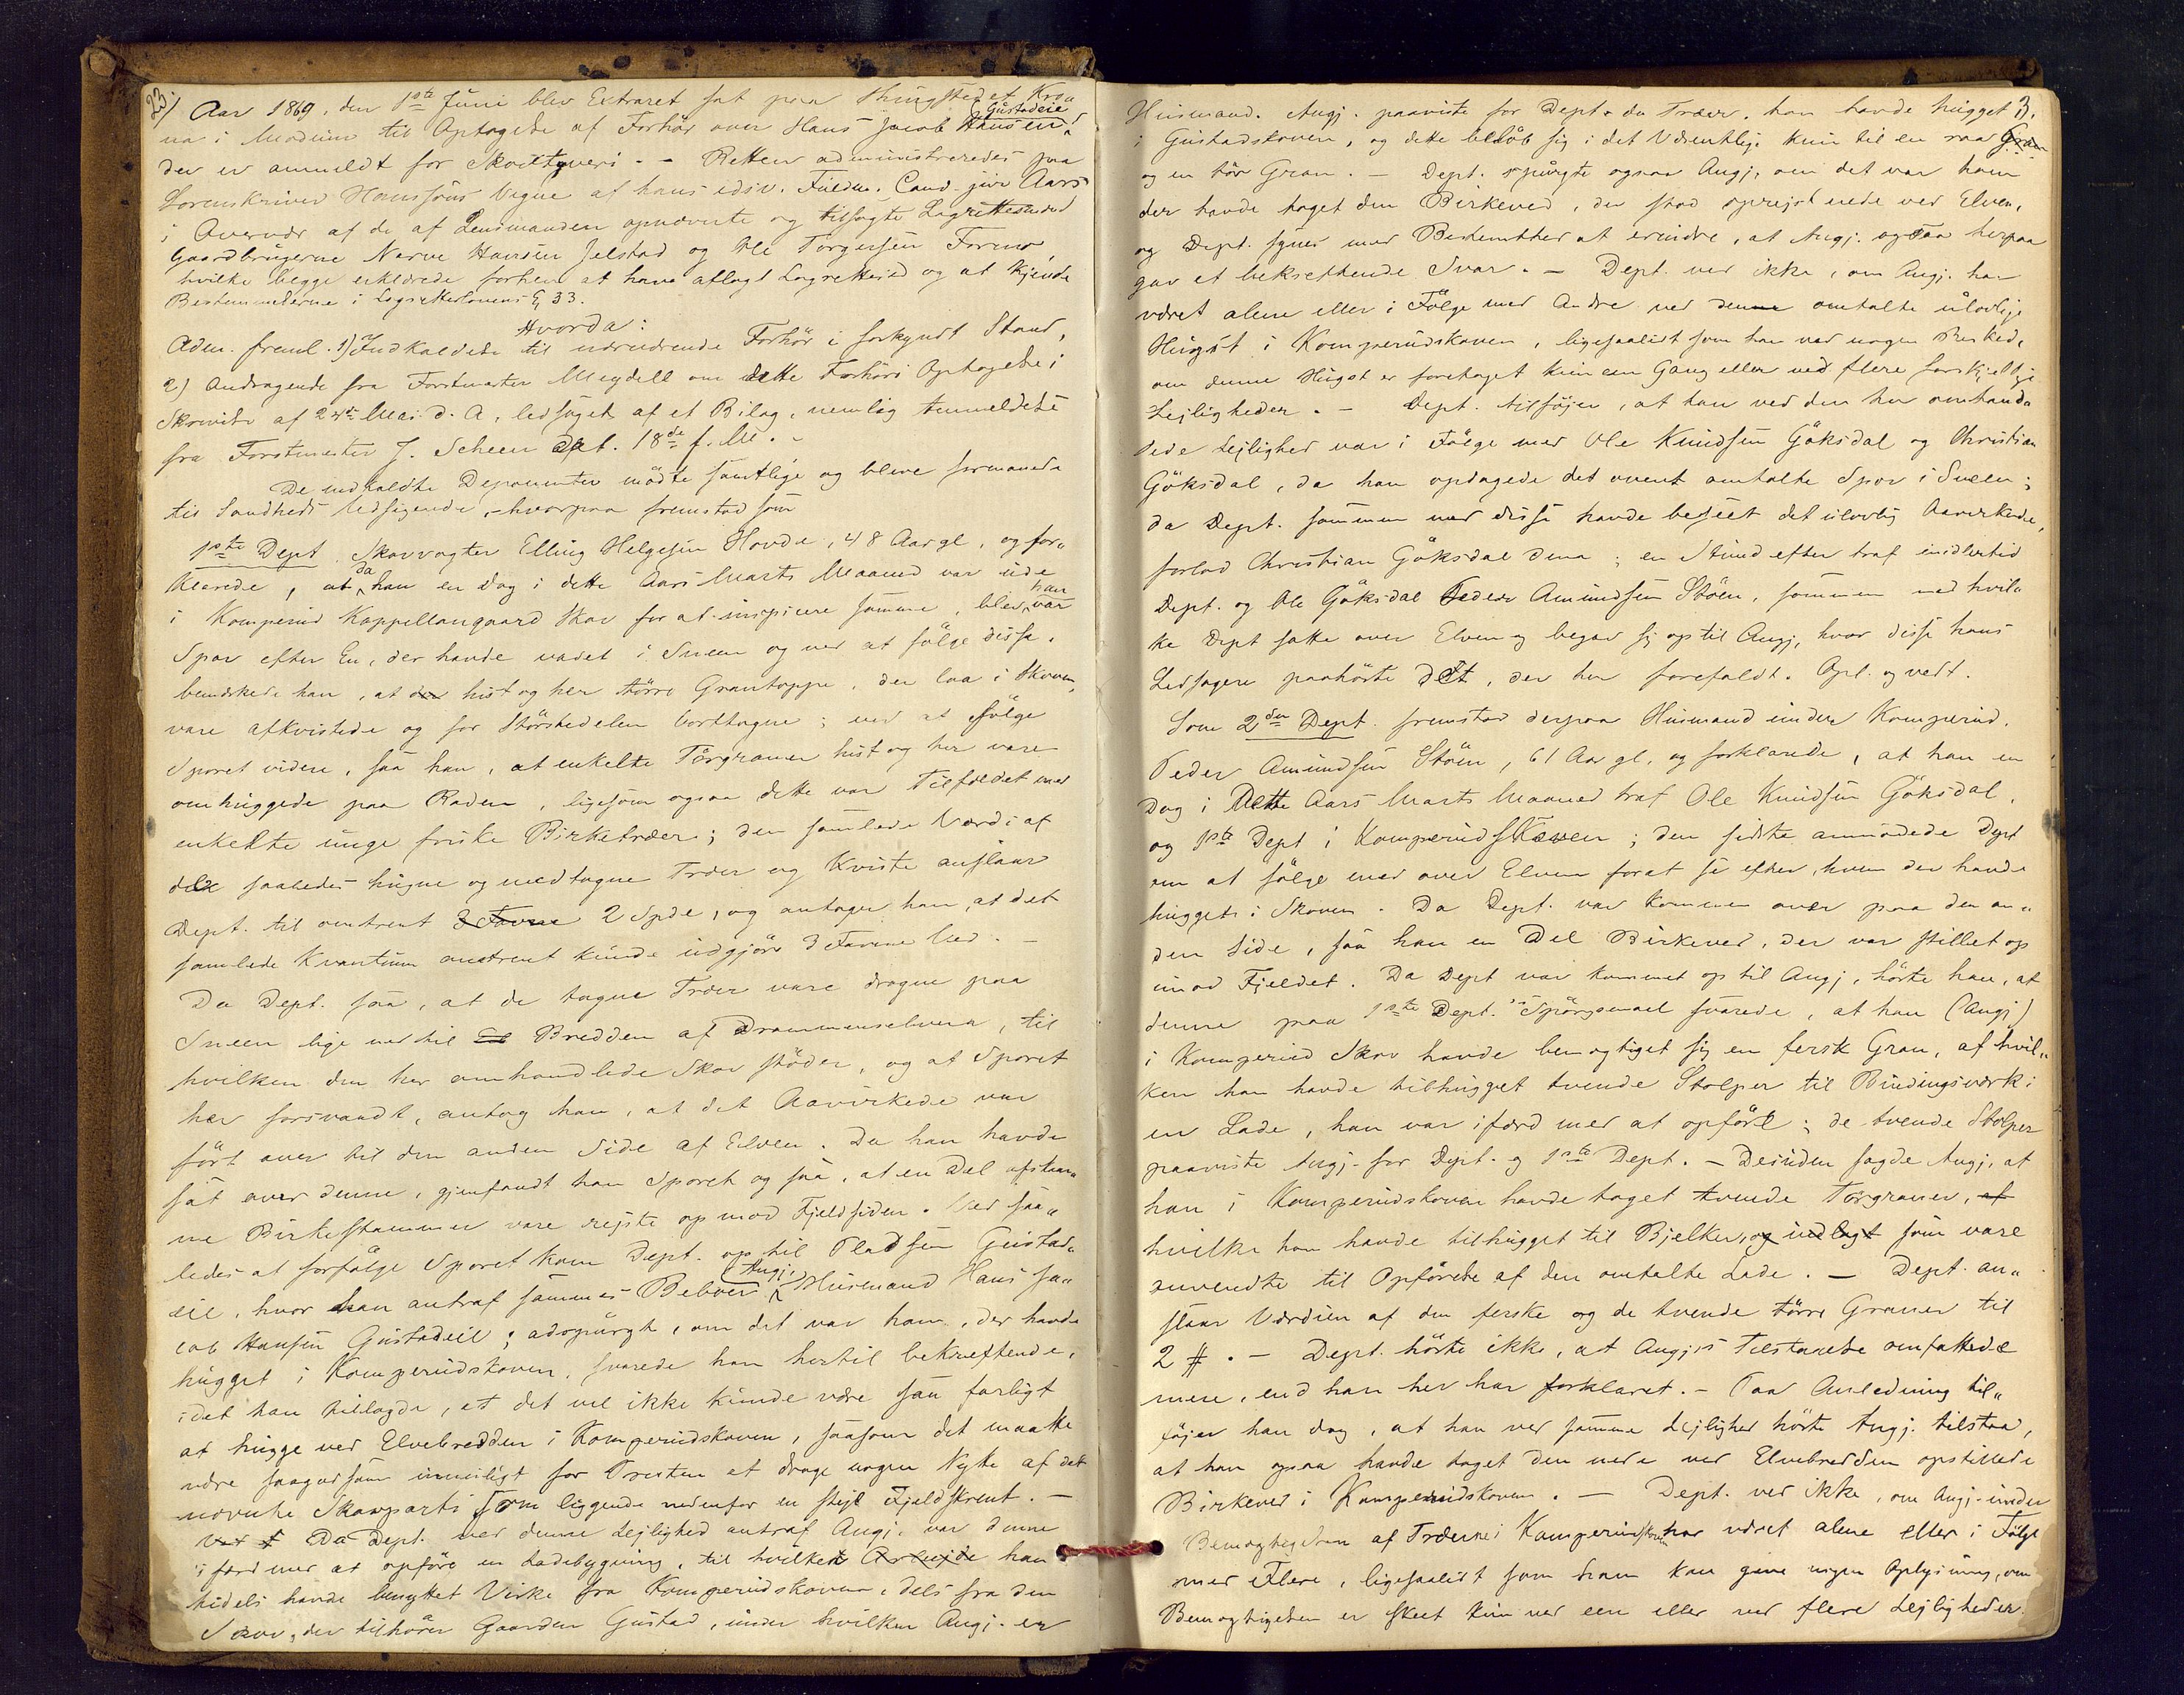 23/ Aar 1869, den 1ste Juni blev Extraret sat paa Thingstedet Kro„
na i Modum til Optagelse af Forhör over Hans Jacob Hansen Gustadeie
der er anmeldt for Skovtyveri. - Retten administreredes paa
Sorenskriver Hanssons Vegne af hans edsv. Fuldm. Cand. jur Aars
i Overvær af de af Lensmanden opnævnte og tilsagte Lagrettesmænd
Gaardbrugerne Narve Hansen Jelstad og Ole Torgersen Formo
hvilke begge erklærede forhen at have aflagt Lagrettesed og at kjende
Bestemmelserne i Lagrettelovens § 33.
Hvorda:
Adm. freml. 1) Indkaldelse til nærværende Forhör i forkyndt Stand,
2) Andragende fra Forstmester Meydell om dette Forhörs Optagelse i
Skrivelse af 24de Mai d. A, ledsaget af et Bilag, nemlig Anmeldelse
fra Forstmester J. Scheen dat. 18de f. M. -
De indkaldte Deponenter mödte samtlige og bleve formanede
til Sandheds Udsigende, - hvorpaa fremstod som
1ste Dept Skovvogter Elling Helgesen Hovde, 48 Aar gl, og for„
klarede, at da han en Dag i dette Aars Marts Maaned var ude
i Komperud Kappellangaard Skov for at inspicere samme, blev han var
Spor efter En, der havde vadet i Sneen og ved at fölge disse,
bemærkede han, at hist og her törre Grantoppe, der laa i Skoven,
vare afkvistede og for Störstedelen borttagne; ved at fölge
Sporet videre, saa han, at enkelte Törgraner hist og her vare
omhuggede paa Roden, ligesom ogsaa dette var Tilfældet med
enkelte unge friske Birketræer; den samlede Værdi af
de saaledes hugne og medtagne Træer og Kviste anslaar
Dept. til omtrent 3 Favne 2 Spdr, og antager han, at det
samlede Kvantum omtrent kunde udgjöre 3 Favne Ved. -
Da Dept. saa, at de tagne Træer vare dragne paa
Sneen lige ned til Bredden af Drammenselven, til
hvilken den her omhandlede Skov stöder, og at Sporet
her forsvandt, antog han, at det Aavirkede var
fört over til den anden Side af Elven. Da han havde
sat over denne, gjenfandt han Sporet og saa, at en Del afskaar„
ne Birkestammer vare rejste op mod Fjeldsiden. Ved saa„
ledes at forfölge Sporet kom Dept. op til Pladsen Gustad„
eie, hvor han antraf sammes Beboer (Angj.) Husmand Hans Ja„
cob Hansen Gustadeie; adspurgt, om det var ham, der havde
hugget i Komperudskoven, svarede han hertil bekræftende,
idet han tillagde, at det vel ikke kunde være saa farligt
at hugge ved Elvebredden i Komperudskoven, saasom det maatte
være saagodtsom umuligt for Presten at drage nogen Nytte af det
nævnte Skovparti som liggende nedenfor en stejl Fjeldskrent. -
Da Dept. ved denne Lejlighed antraf Angj. var denne
ifærd med at opföre en Ladebygning, til hvilket Arbejde han
tildels havde benyttet Virke fra Komperudskoven, dels fra den
Skov, der tilhörer Gaarden Gustad, under hvilken Angj. er
3.
Husmand. Angj. paaviste for Dept. de Træer, han havde hugget
i Gustadskoven, og dette belöb sig i det Væsentlige kun til en raa Gran
og en tör Gran. - Dept. spurgte ogsaa Angj, om det var ham
der havde taget den Birkeved, der stod oprejst nede ved Elven,
og Dept. synes med Bestemthed at erindre, at Angj. ogsaa herpaa
gav et bekræftende Svar. - Dept. ved ikke, om Angj. har
været alene eller i Fölge med Andre ved denne omtalte ulovlige
Hugst i Komperudskoven, ligesaalidt som han ved nogen Besked,
om denne Hugst er foretaget kun een Gang eller ved flere forskjellige
Lejligheder. - Dept. tilföjer, at han ved den her omhand„
lede Lejlighed var i Fölge med Ole Knudsen Göksdal og Christian
Göksdal, da han opdagede det ovent omtalte Spor i Sneen;
da Dept. sammen med disse havde beseet det ulovlig Aavirkede,
forlod Christian Göksdal dem; en Stund efter traf imidlertid
Dept. og Ole Göksdal Peder Amundsen Stöen, sammen med hvil„
ke Dept satte over Elven og begav sig op til Angj, hvor disse hans
Ledsagere paahörte det, der her forefaldt. Opl. og vedt.
Som 2den Dept. fremstod derpaa Husmand under Komperud,
Peder Amundsen Stöen, 61 Aar gl, og forklarede, at han en
Dag i dette Aars Marts Maaned traf Ole Knudsen Göksdal,
og 1ste Dept i Komperudskoven; den sidste anmodede Dept
om at fölge med over Elven forat se efter, hvem der havde
hugget i Skoven. Da Dept. var kommen over paa den an„
den Side, saa han en Del Birkeved, der var stillet op
imod Fjeldet. Da Dept var kommet op til Angj, hörte han, at
denne paa 1ste Dept.'s Spörgsmaal svarede, at han (Angj)
i Komperud Skov havde bemægtiget sig en fersk Gran, af hvil„
ken han havde tilhugget tvende Stolper til Bindingsværk i
en Lade, han var ifærd med at opföre; de tvende Stolper
paaviste Angj. for Dept. og 1ste Dept. - Desuden sagde Angj, at
han i Komperudskoven havde taget tvende Törgraner, af
hvilke han havde tilhugget til Bjelker, og indlagt som vare
anvendte til Opförelse af den omtalte Lade. - Dept. an„
slaar Værdien af den ferske og de tvende törre Graner til
2 #. - Dept. hörte ikke, at Angj.s Tilstaaelse omfattede
mere, end han her har forklaret. - Paa Anledning til„
föjer han dog, at han ved samme Lejlighed hörte Angj. tilstaa,
at han ogsaa havde taget den nede ved Elvebredden opstillede
Birkeved i Komperudskoven. - Dept. ved ikke, om Angj. under
Bemægtigelsen af Træerne i Komperudskoven har været alene eller i Fölge
med Flere, ligesaalidt som han kan give nogen Oplysning, om
Bemægtigelsen er skeet kun ved een eller ved flere Lejligheder.